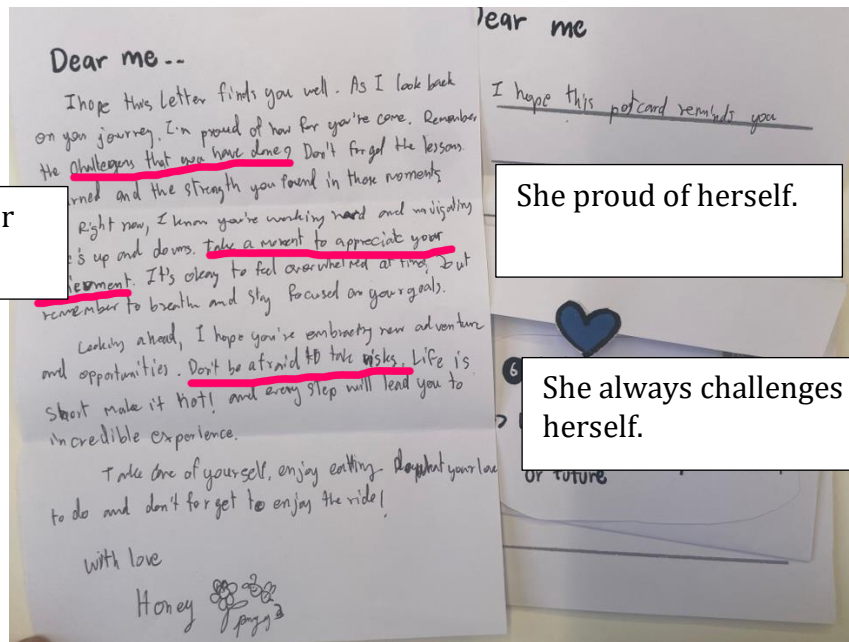 Dear me --
I hope this letter finds you well. As I look back
on your journey, I'm proud of how far you're come. Remember
the challengers that you have done? Don't forget the lessons
rned and the strength you found in those moments
Right now, I know you're working hard and navigating
's up and downs. take a moment to appreciate your
ievment. It's okey to feel overwhelmed at time, but
remember to breath and stay focused on your goals.
Looking ahead, I hope you're embracing new adventure
and opportunities. Don't be afraid to take risks. Life is
short make it hot! and every step will lead you to
incredible experience.
Take care of yourself, enjoy eatting what your love
to do and don't forget to enjoy the ride!
with love
Honey
Dear me
I hope this potcard reminds you
r
She proud of herself.
6
She always challenges
herself.
or future